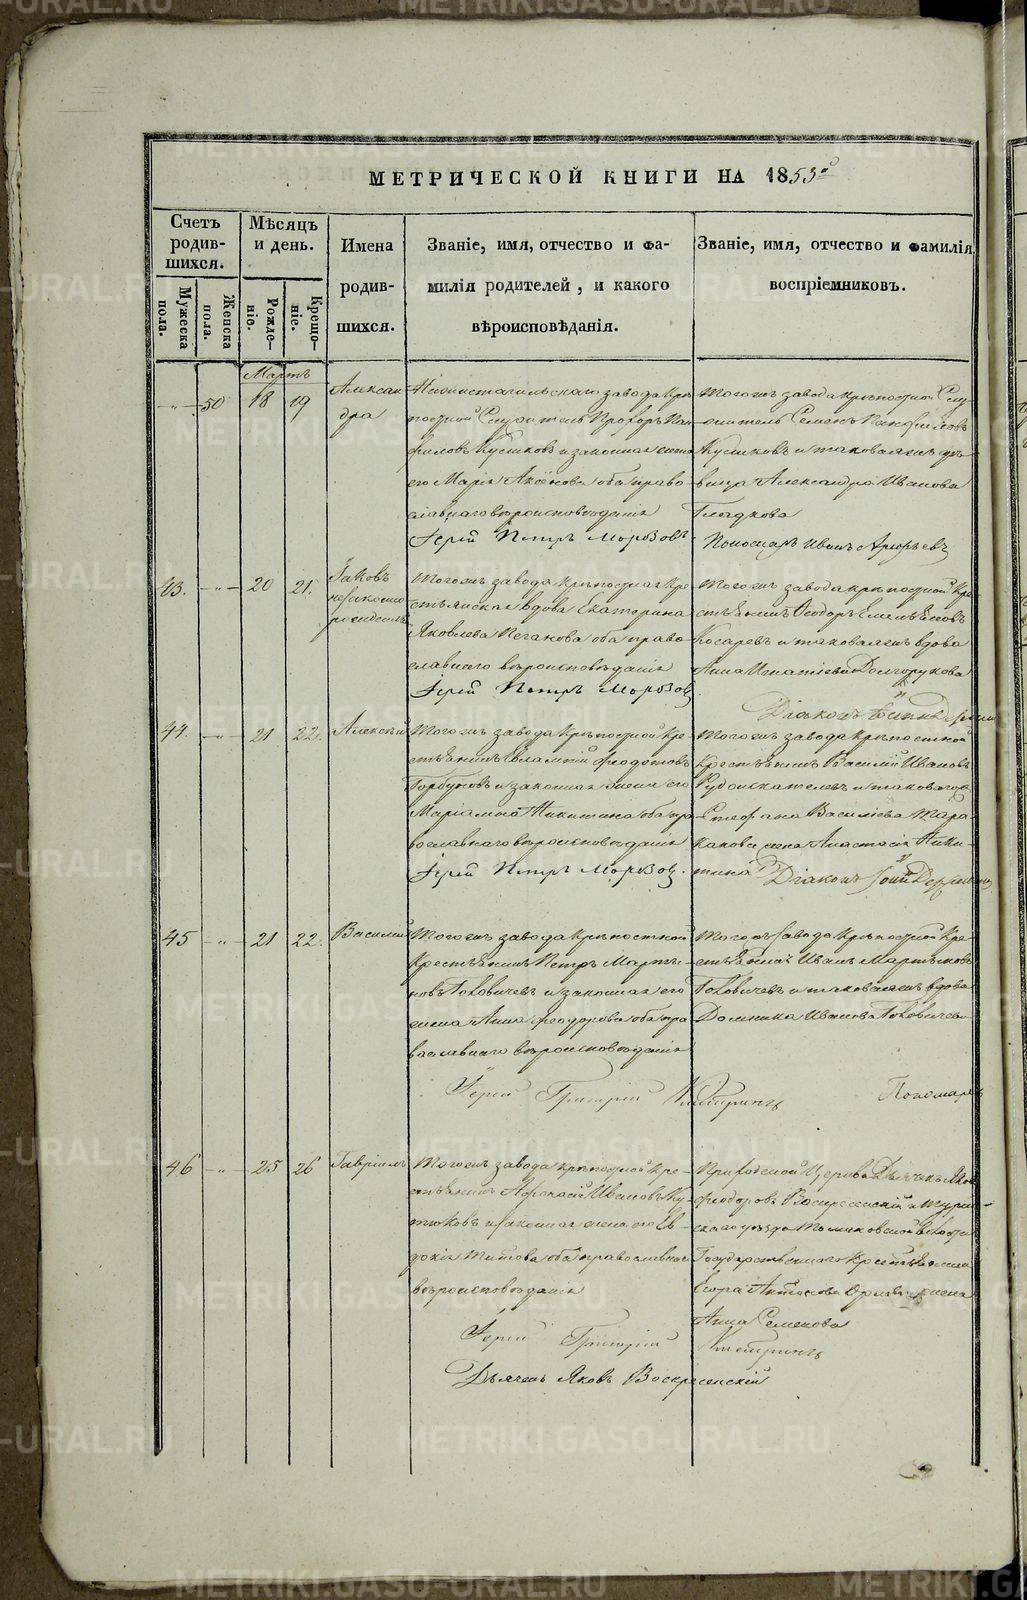 МЕТРИЧЕСКОЙ КНИГИ НА 1853й
Счетъ родив-шихся.
Мужеска пола.
Женска пола.
Мѣсяцъ и день.
Рожде-ніе.
Креще-ніе.
Имена родив-шихся.
Званіе, имя, отчество и фа-
милія родителей, и какого
вѣроисповѣданія.
Званіе, имя, отчество и фамилія
воспріемниковъ.
Мартъ
-"- 50 18 19
Алексан
дра
Нижнетагильскаго завода крѣ
постной Служитель Прохоръ Пан
филовъ Кусиковъ и законная жена
его Марія Аксенова оба право
славнаго вѣроисповѣданія
Іерей Петръ Морозовъ
Тогожъ завода крѣпостной Слу
житель Семенъ Панфиловъ
Кусиковъ и таковаяжъ дѣ-
вица Александра Иванова
Гладкова
Пономарь Иванъ
43. -"- 20 21.
Іаковъ
незаконно
рожденъ
Тогожъ завода крѣпостная Кре
стьянская вдова Екатерина
Яковлева оба право
славнаго вѣроисповѣданія
Іерей Петръ Морозовъ
Тогожъ завода крѣпостной Кре
стьянинъ Ѳеодоръ Емельяновъ
Косаревъ и таковаяжъ вдова
Анна Игнатіева Долгорукова
Діаконъ
44. -"- 21 22.
Алексѣй
Тогожъ завода крѣпостной Кре
стьянинъ Евлампій Ѳедотовъ
Горбуновъ и законная жена его
Маріамна Никитина оба пра
вославнаго вѣроисповѣданія
Іерей Петръ Морозовъ.
Тогожъ завода крѣпостной
крестьянинъ Василій Ивановъ
Рудоискателевъ и таковагожъ
Стефана Василіева Тара
канова жена Анастасія Ники-
тина
Діаконъ
45 -"- 21 22.
Василій
Тогожъ завода крѣпостной
крестьянинъ Петръ Марты-
новъ Боковичевъ и законная его
жена Анна Феодорова оба пра
вославнаго вѣроисповѣданія
Іерей Григорій
Тогожъ завода крѣпостной Кре
стьянинъ Иванъ Мартыновъ
Боковичевъ и таковаяжъ вдова
Домника Иванова Боковичева
Пономарь
46 -"- 25 26
Гавріилъ
Тогожъ завода крѣпостной Кре
стьянинъ Афанасій Ивановъ
и законная жена его Ев-
докія Титова оба православнаго
вѣроисповѣданія
Іерей Григорій
Приходской Церкви Дьячекъ Яковъ
Феодоровъ Воскресенскій и
скаго уѣзда волости
Государственнаго Крестьянина
Егора Антонова жена
Анна Семенова
Дьячекъ Яковъ Воскресенскій
METRIKI.GASO-URAL.RU